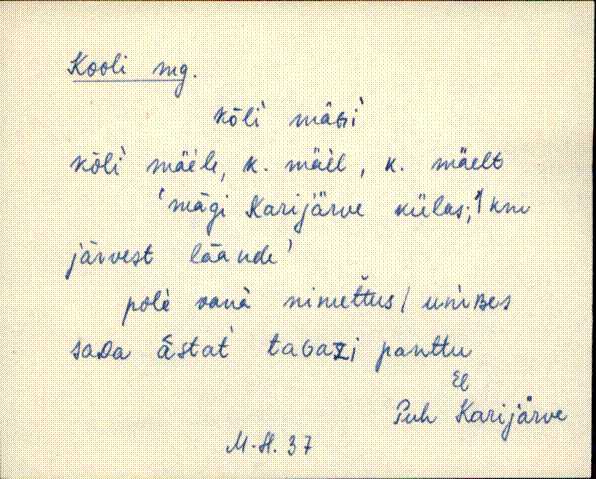 Kooli mg.
kōli mäGi
kōli mäele, k. mäel, k. mäelt
'mägi Karijärve külas; 1 km
järvest läände'
pole vana nimettus / umbes
saDa āstat taGazi panttu
El
Puh Karijärve
M.H. 37